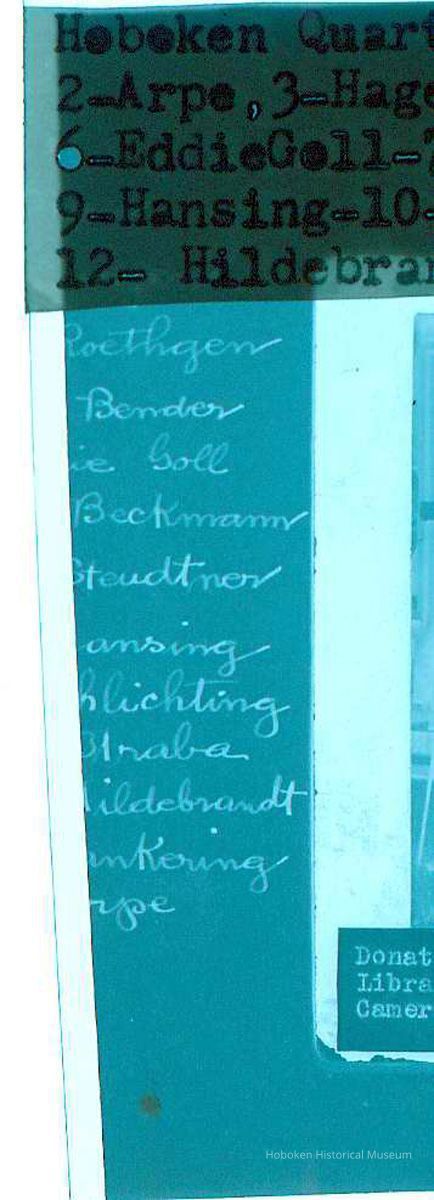 Hoboken Quart
2-Arpe,3-Hage
6-EddieGoll-7
9-Hansing-10-
12- Hildebran
Roethgen
Bender
ie Goll
Beckmann
Steudtner
ansing
hlichting
Straba
ildebrandt
ankering
rpe
Donat
Libra
Camer
Hoboken Historical Museum